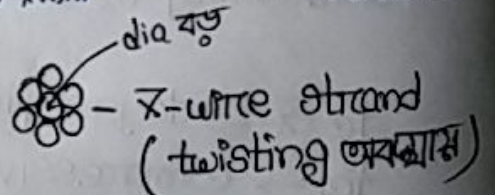 dia বড়
7-wire strand
(twisting অবস্থায়)